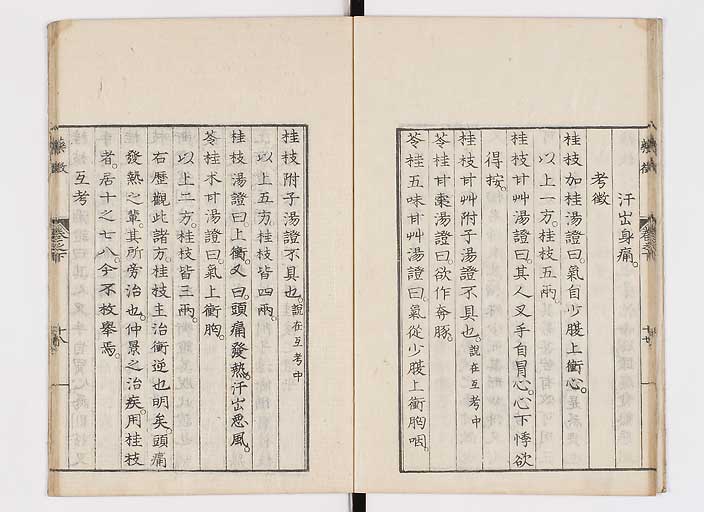 汗出身痛。
考徵
桂枝加桂湯證曰。氣自少腹上衝心。
以上一方。桂枝五兩。
桂枝甘艸湯證曰。其人叉手自冒心。心下悸欲
得按。
桂枝甘艸附子湯證不具也。說在互考中
苓桂甘棗湯證曰。欲作奔豚。
苓桂五味甘艸湯證曰。氣從少腹上衝胸咽。
藥徵 卷之下 十七
桂枝附子湯證不具也。說在互考中
以上五方。桂枝皆四兩。
桂枝湯證曰。上衝。又曰。頭痛發熱。汗出惡風。
苓桂朮甘湯證曰。氣上衝胸。
以上二方。桂枝皆三兩。
右歷觀此諸方。桂枝主治衝逆也明矣。頭痛
發熱之輩。其所旁治也。仲景之治疾。用桂枝
者。居十之七八。今不枚舉焉。
互考
藥徵 卷之下 十八